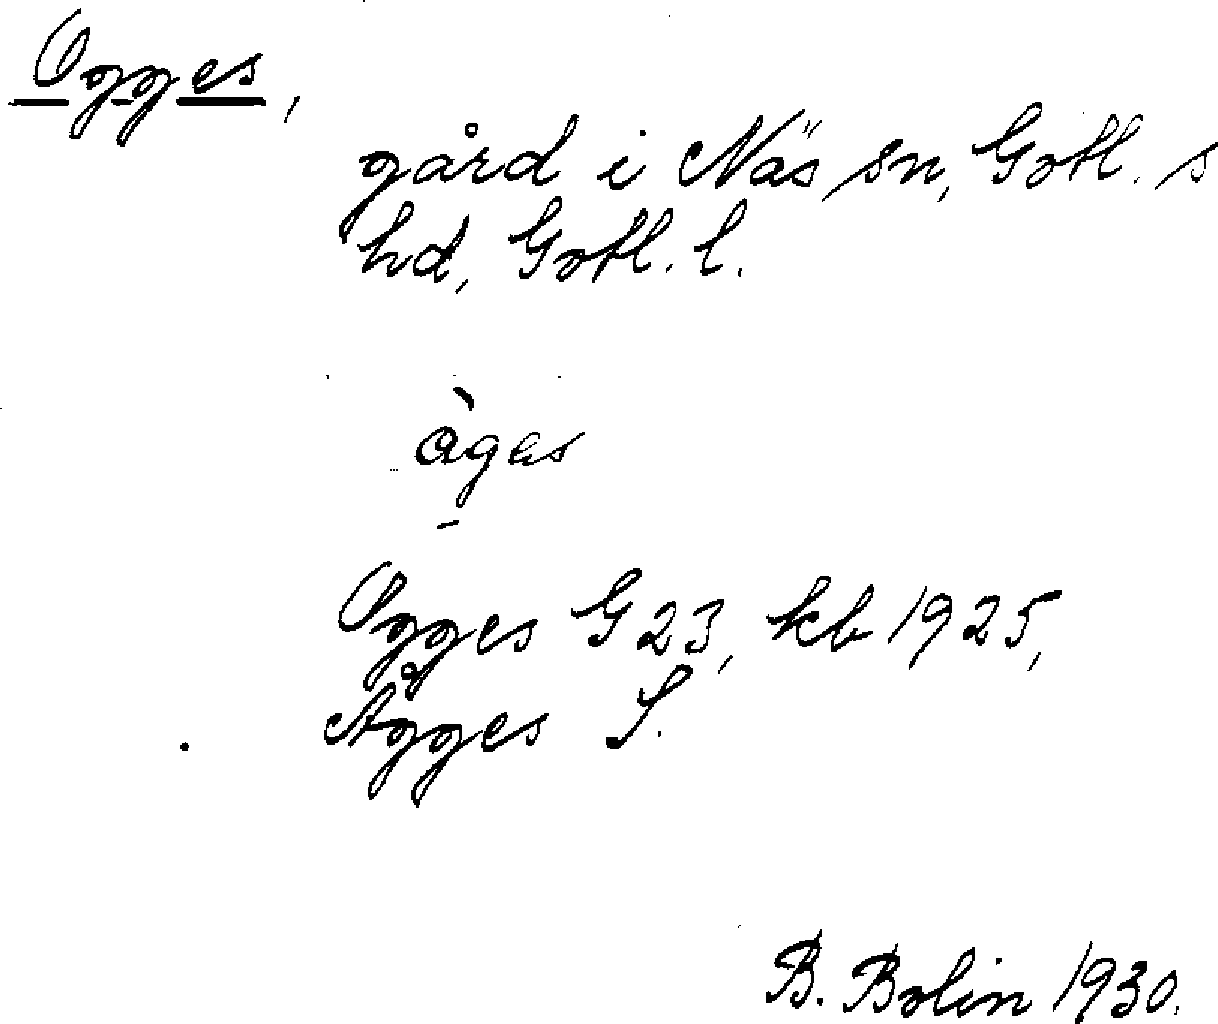 Ogges,
gård i Näs sn, Gotl. s
hd, Gotl. l.
àges
Ogges G 23, kb 1925,
Ågges S.
B. Bolin 1930.